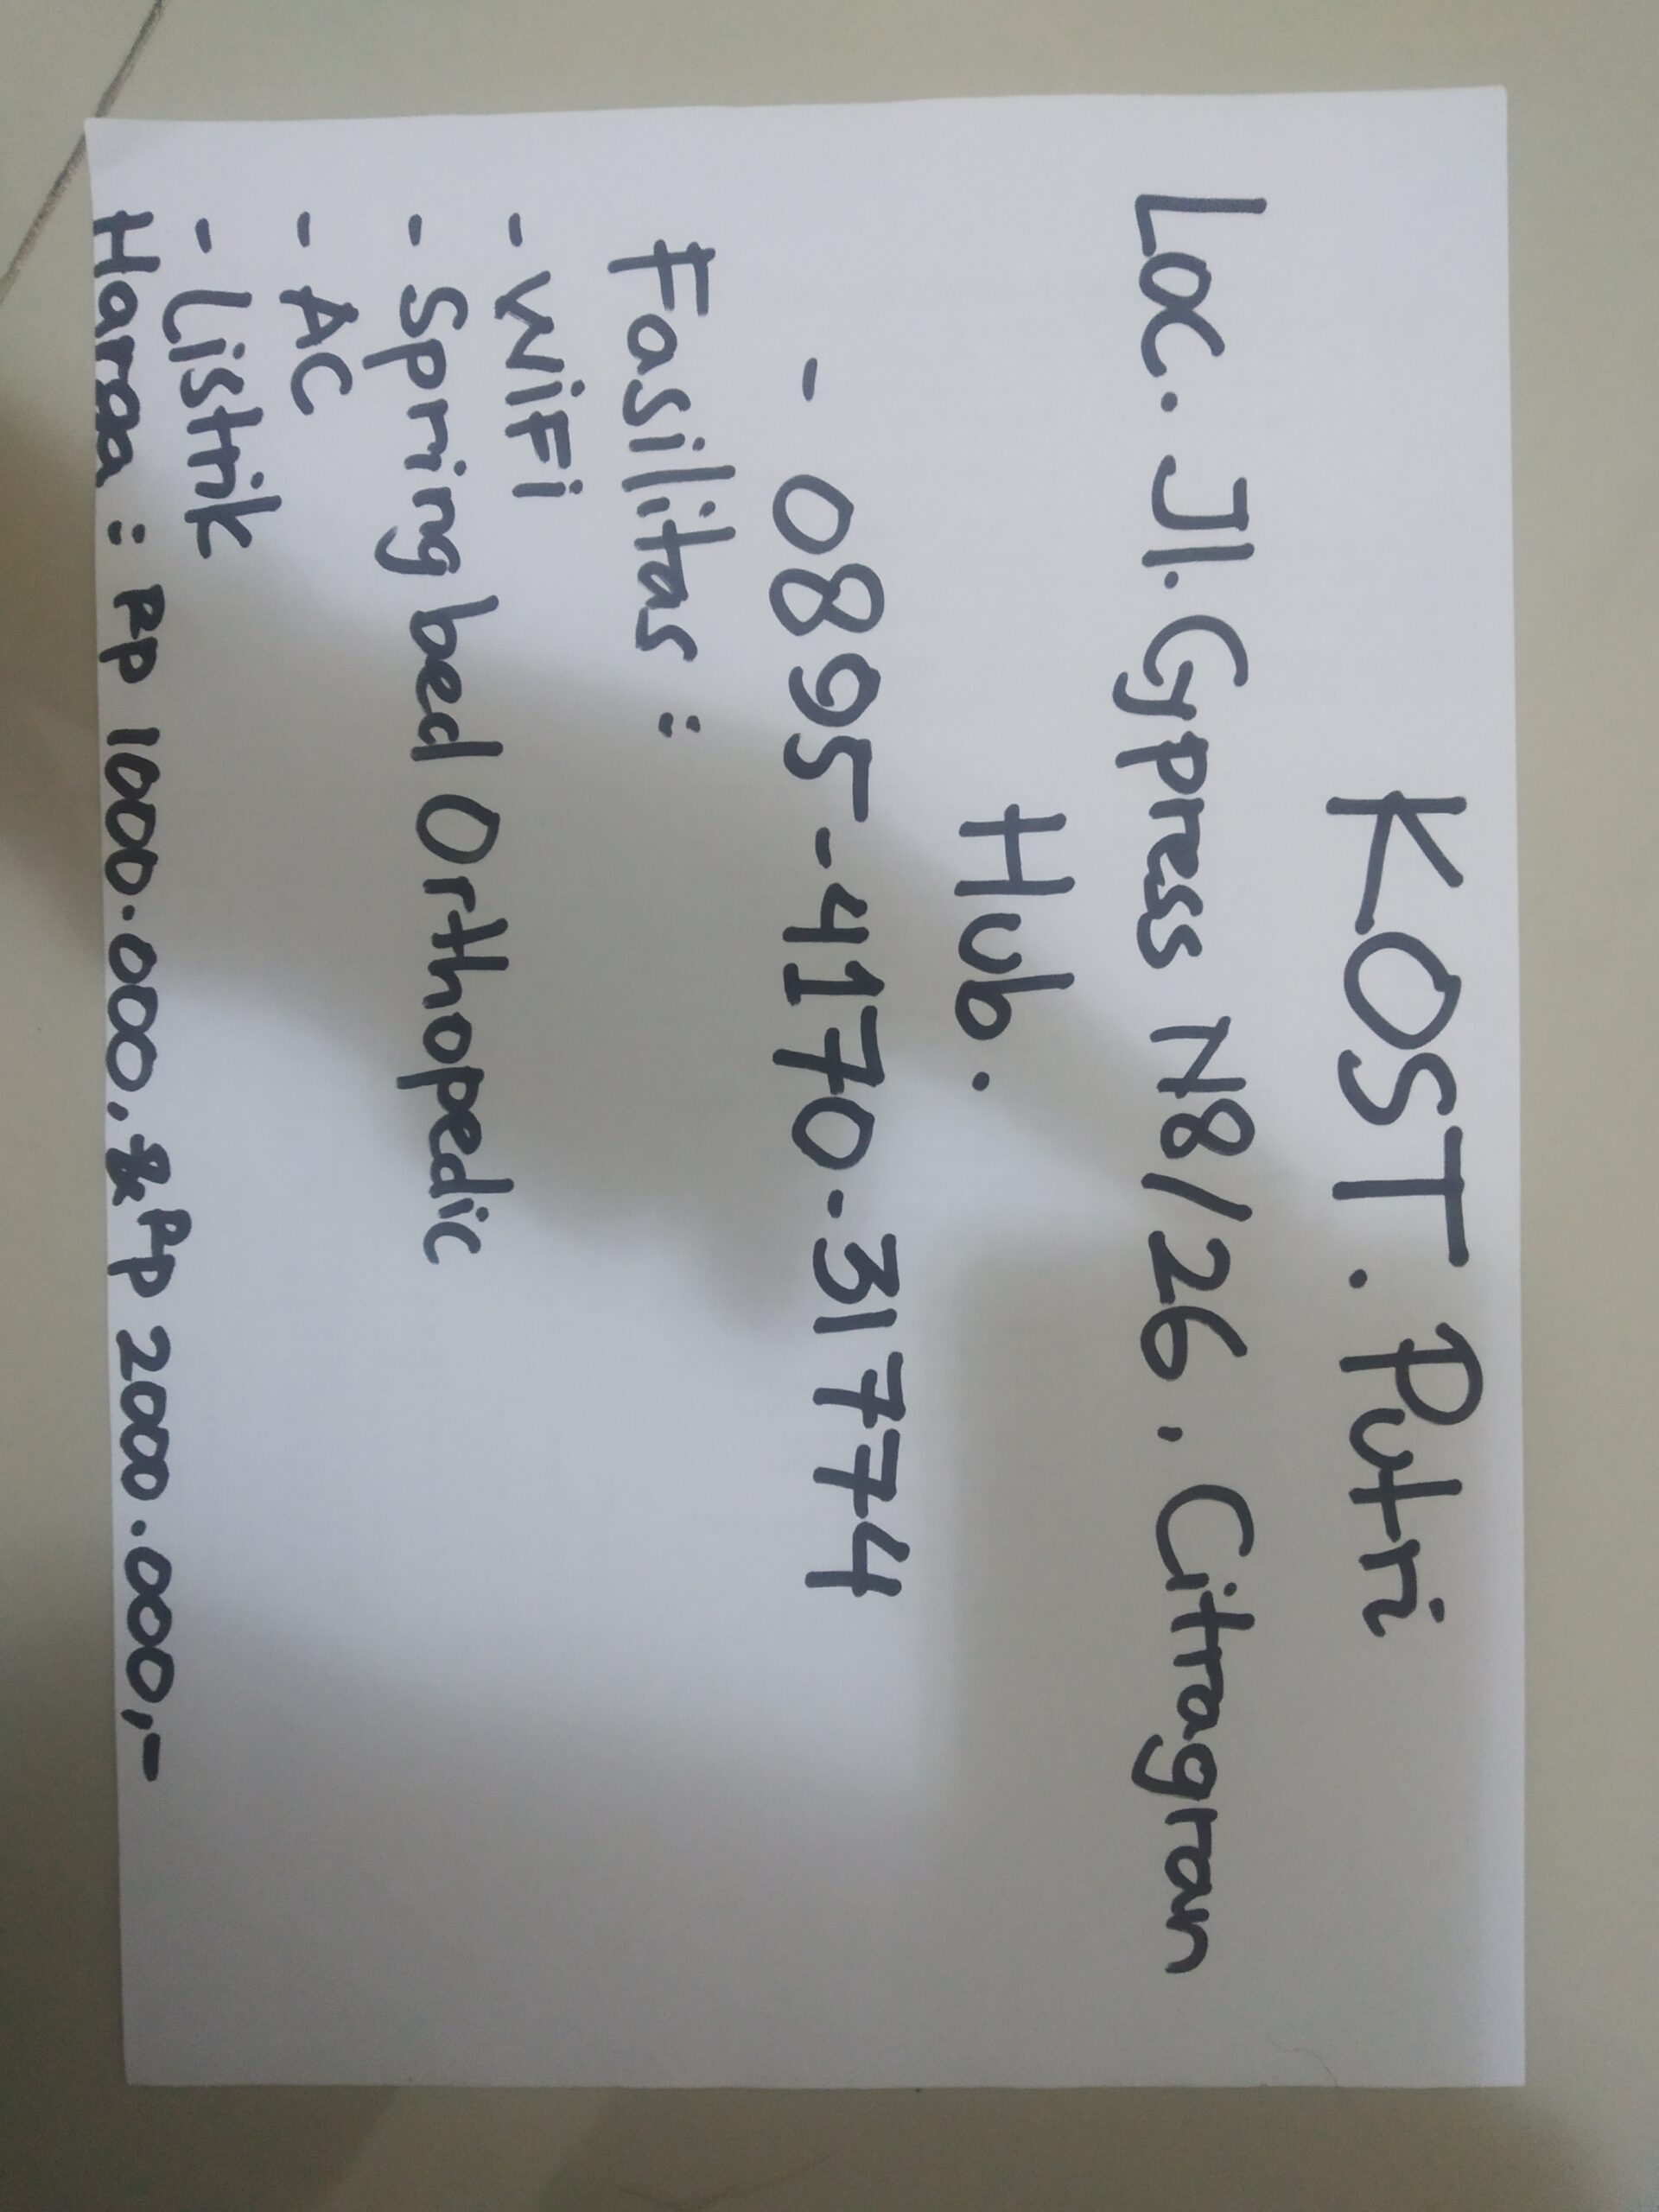 KOST. Putri
Loc. Jl. Cypress N8/26. Citragran
Hub.
- 0895-4170-31774
Fasilitas :
- WiFi
- Spring bed Orthopedic
- AC
- Listrik
Harga : Rp 1000.000. & Rp 2000.000,-